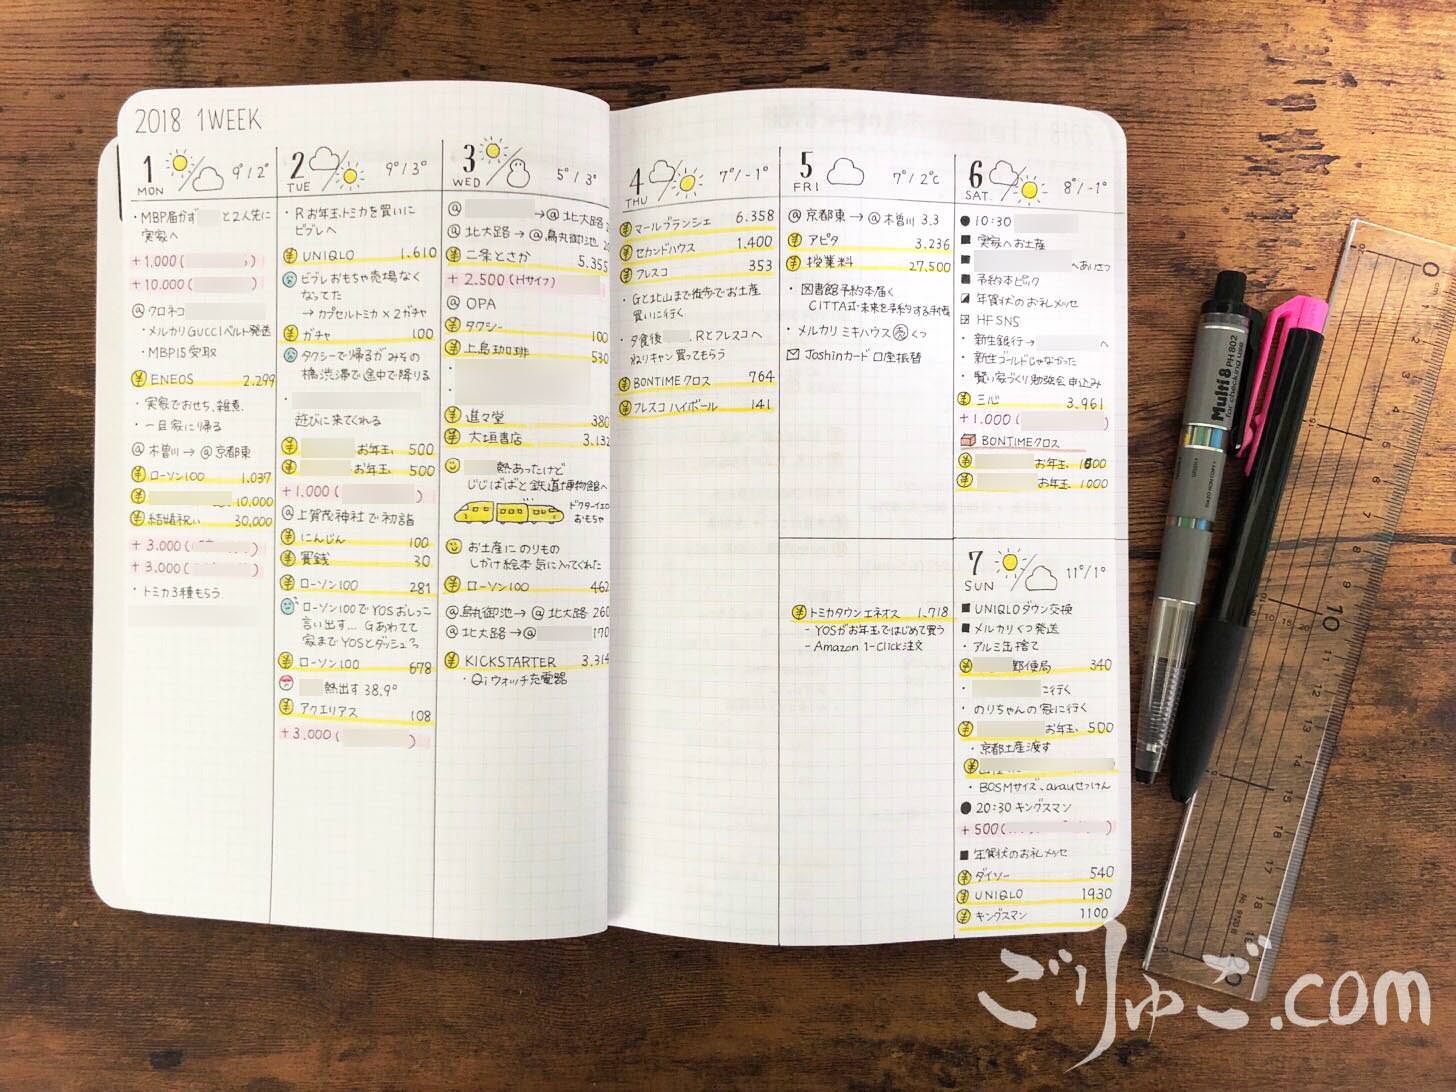 2018 1WEEK
1 MON 9°/2°
・MBP届かず と2人先に
実家へ
+1.000( )
+10.000( )
@クロネコ
・メルカリGUCCIベルト発送
・MBP15受取
¥ENEOS 2.299
・実家でおせち、雑煮、
・一旦家に帰る
@木曽川→@京都東
¥ローソン100 1.037
¥ 10,000
¥結婚祝い 30,000
+3.000( )
+3.000( )
・トミカ3種もらう
2 TUE 9°/3°
・Rお年玉、トミカを買いに
ビブレへ
¥UNIQLO 1.610
ビブレおもちゃ売場なく
なってた
→カプセルトミカ×2ガチャ
¥ガチャ 100
タクシーで帰るがみその
橋渋滞で途中で降りる
遊びに来てくれる
¥ お年玉、500
¥ お年玉、500
+1.000( )
@上賀茂神社で初詣
¥にんじん 100
¥賽銭 30
¥ローソン100 281
ローソン100でYOSおしっこ
言い出す… Gあわてて
家までYOSとダッシュ
¥ローソン100 678
熱出す 38.9°
¥アクエリアス 108
+3,000( )
3 WED 5°/3°
@ →@北大路
@北大路→@烏丸御池
¥二条とさか 5.355
+2.500(Hサイフ)
@OPA
¥タクシー 100
¥上島珈琲 530
¥進々堂 380
¥大垣書店 3.132
熱あったけど
じじばばと鉄道博物館へ
ドクターイエロー
おもちゃ
お土産にのりもの
しかけ絵本 気に入ってくれた
¥ローソン100 462
@烏丸御池→@北大路 260
@北大路→@ 170
¥KICKSTARTER 3.314
・Qiウォッチ充電器
4 THU 7°/-1°
¥マールブランシェ 6.358
¥セカンドハウス 1.400
¥フレスコ 353
・Gと北山まで徒歩でお土産
買いに行く
・夕食後 、Rとフレスコへ
ねりキャン買ってもらう
¥BONTIMEクロス 764
¥フレスコハイボール 141
5 FRI 7°/2℃
@京都東→@木曽川 3.3
¥アピタ 3,236
¥授業料 27,500
・図書館予約本届く
CITTA式・未来を予約する手帳
・メルカリ ミキハウス 売 くつ
Joshinカード口座振替
¥トミカタウンエネオス 1,718
- YOSがお年玉ではじめて買う
- Amazon 1-Click注文
6 SAT. 8°/-1°
●10:30
■実家へお土産
■ へあいさつ
■予約本ピック
年賀状のお礼メッセ
HF SNS
・新生銀行→ へ
・新生ゴールドじゃなかった
・賢い家づくり勉強会申込み
¥三心 3.961
+1.000( )
BONTIMEクロス
¥ お年玉、1000
¥ お年玉、1000
7 SUN 11°/1°
■UNIQLOダウン交換
■メルカリくつ発送
■アルミ缶捨て
¥ 郵便局 340
・ に行く
・のりちゃんの家に行く
¥ お年玉、500
・京都土産渡す
¥
・BOSMサイズ、arauせっけん
●20:30 キングスマン
+500(
■年賀状のお礼メッセ
¥ダイソー 540
¥UNIQLO 1930
¥キングスマン 1100
Multi8 PH802
for checking use
ごりゅご.com